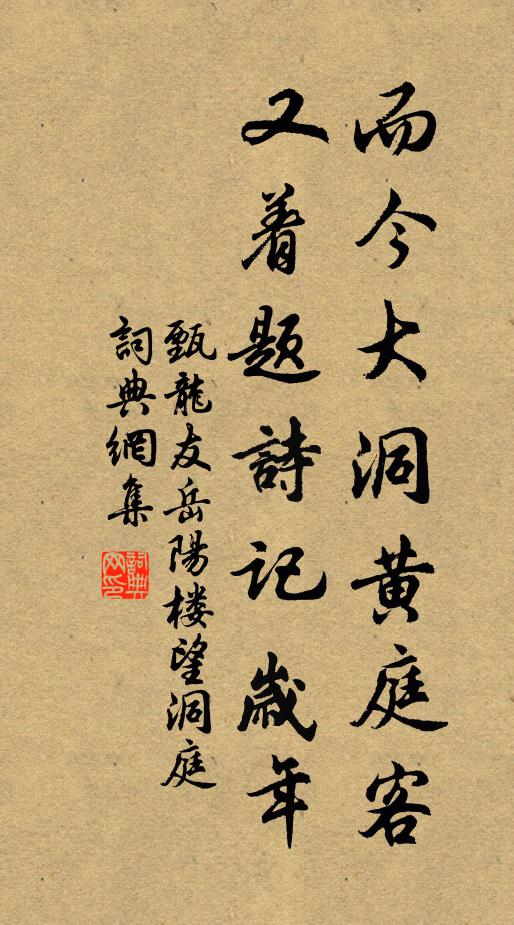 而今大洞黄庭客
又着题詩記歲年
甄龍友岳陽楼望洞庭
詞典網集
詞典
网印